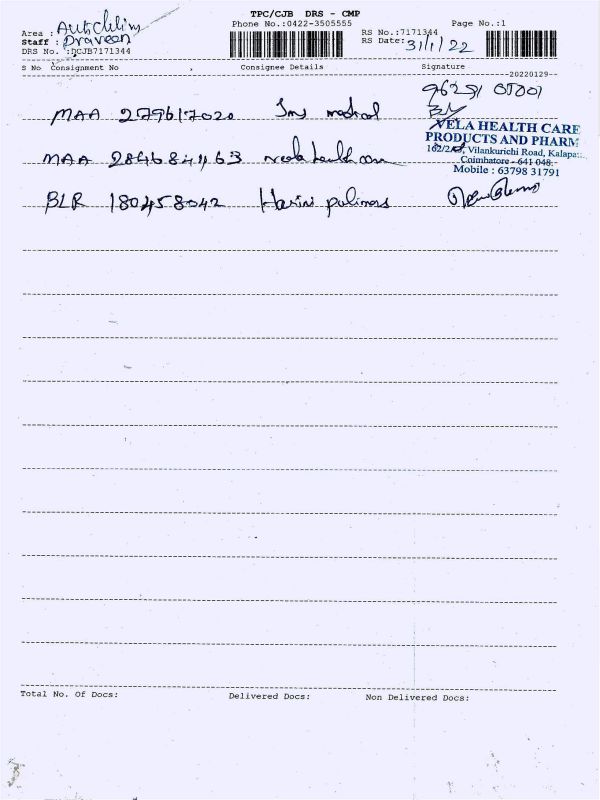 TPC/CJB DRS - CMP
Phone No.:0422-3505555 Page No.:1
Area :
Staff : Praveen
DRS No. :DCJB7171344
RS No.:7171344
RS Date: 31/1/22
S No Consignment No Consignee Details Signature
--20220129--
96251 05001
MAA 279617020 Sms medical
VELA HEALTH CARE
PRODUCTS AND PHARM
Vilankurichi Road, Kalapa
Coimbatore - 641 048.
Mobile : 63798 31791
MAA 284684463
BLR 180458042 Harini polimers
Total No. Of Docs: Delivered Docs: Non Delivered Docs: